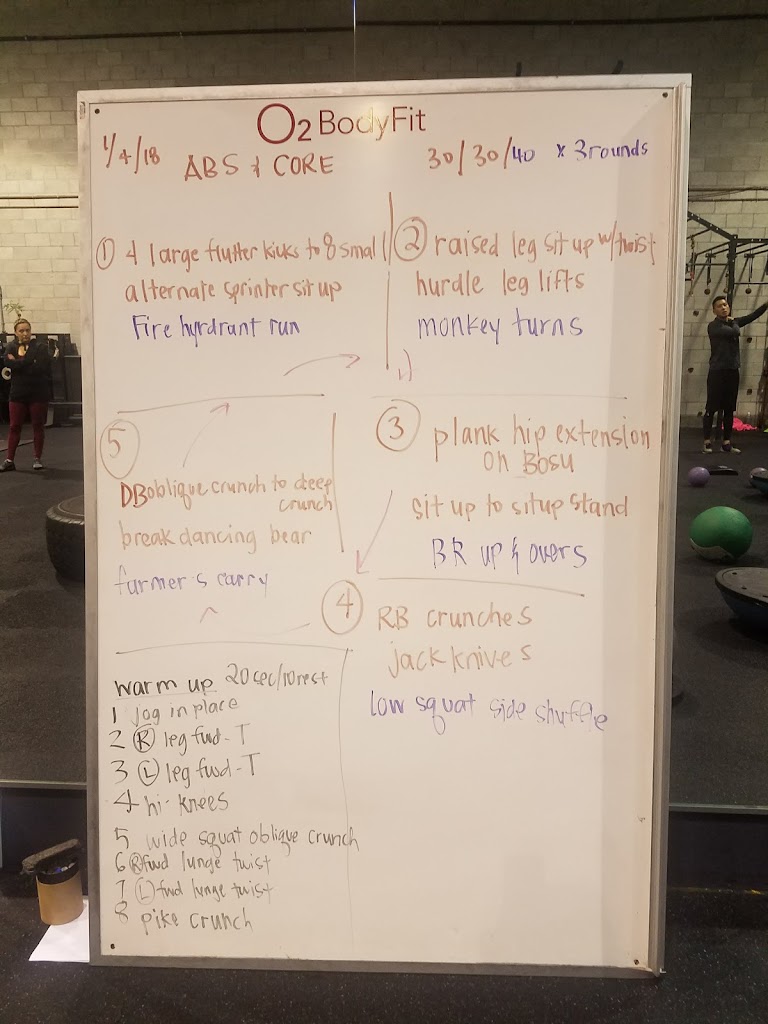 O2 BodyFit
1/4/18 ABS & CORE 30/30/40 x 3 rounds
① 4 large flutter kicks to 8 small
alternate sprinter sit up
Fire hyrdrant run
② raised leg sit up w/twist
hurdle leg lifts
monkey turns
③ plank hip extension
on Bosu
sit up to situp stand
BR up & overs
④ RB crunches
jack knives
low squat side shuffle
⑤
DB oblique crunch to deep
crunch
break dancing bear
farmer's carry
warm up 20sec/10rest
1 jog in place
2 Ⓡ leg fwd-T
3 Ⓛ leg fwd-T
4 hi-knees
5 wide squat oblique crunch
6 Ⓡ fwd lunge twist
7 Ⓛ fwd lunge twist
8 pike crunch